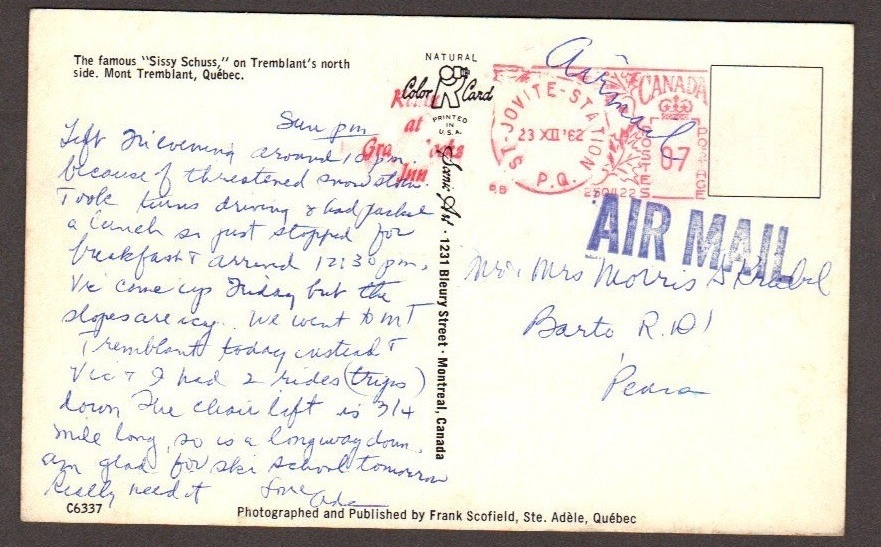 The famous "Sissy Schuss," on Tremblant's north
side. Mont Tremblant, Québec.
NATURAL
Color Card
PRINTED
IN
U.S.A.
at
Inn
Airmail
ST-JOVITE-STATION
23 XII '62
P.Q.
CANADA
POSTES
POSTAGE
07
AIR MAIL
Sun pm
Left Fri evening around 10 pm
because of threatened snow storm.
Took turns driving & had packed
a lunch so just stopped for
breakfast & arrived 12:30 pm.
Vic came up Friday but the
slopes are icy. We went to MT
Tremblant today instead &
Vic & I had 2 rides (trips)
down The chair lift is 3/4
mile long, so is a long way down.
am glad for ski school tomorrow
Really need it Love
Mr. Mrs Morris
Barto R.D1
Penna
Scenic Art · 1231 Bleury Street · Montreal, Canada
C6337
Photographed and Published by Frank Scofield, Ste. Adèle, Québec